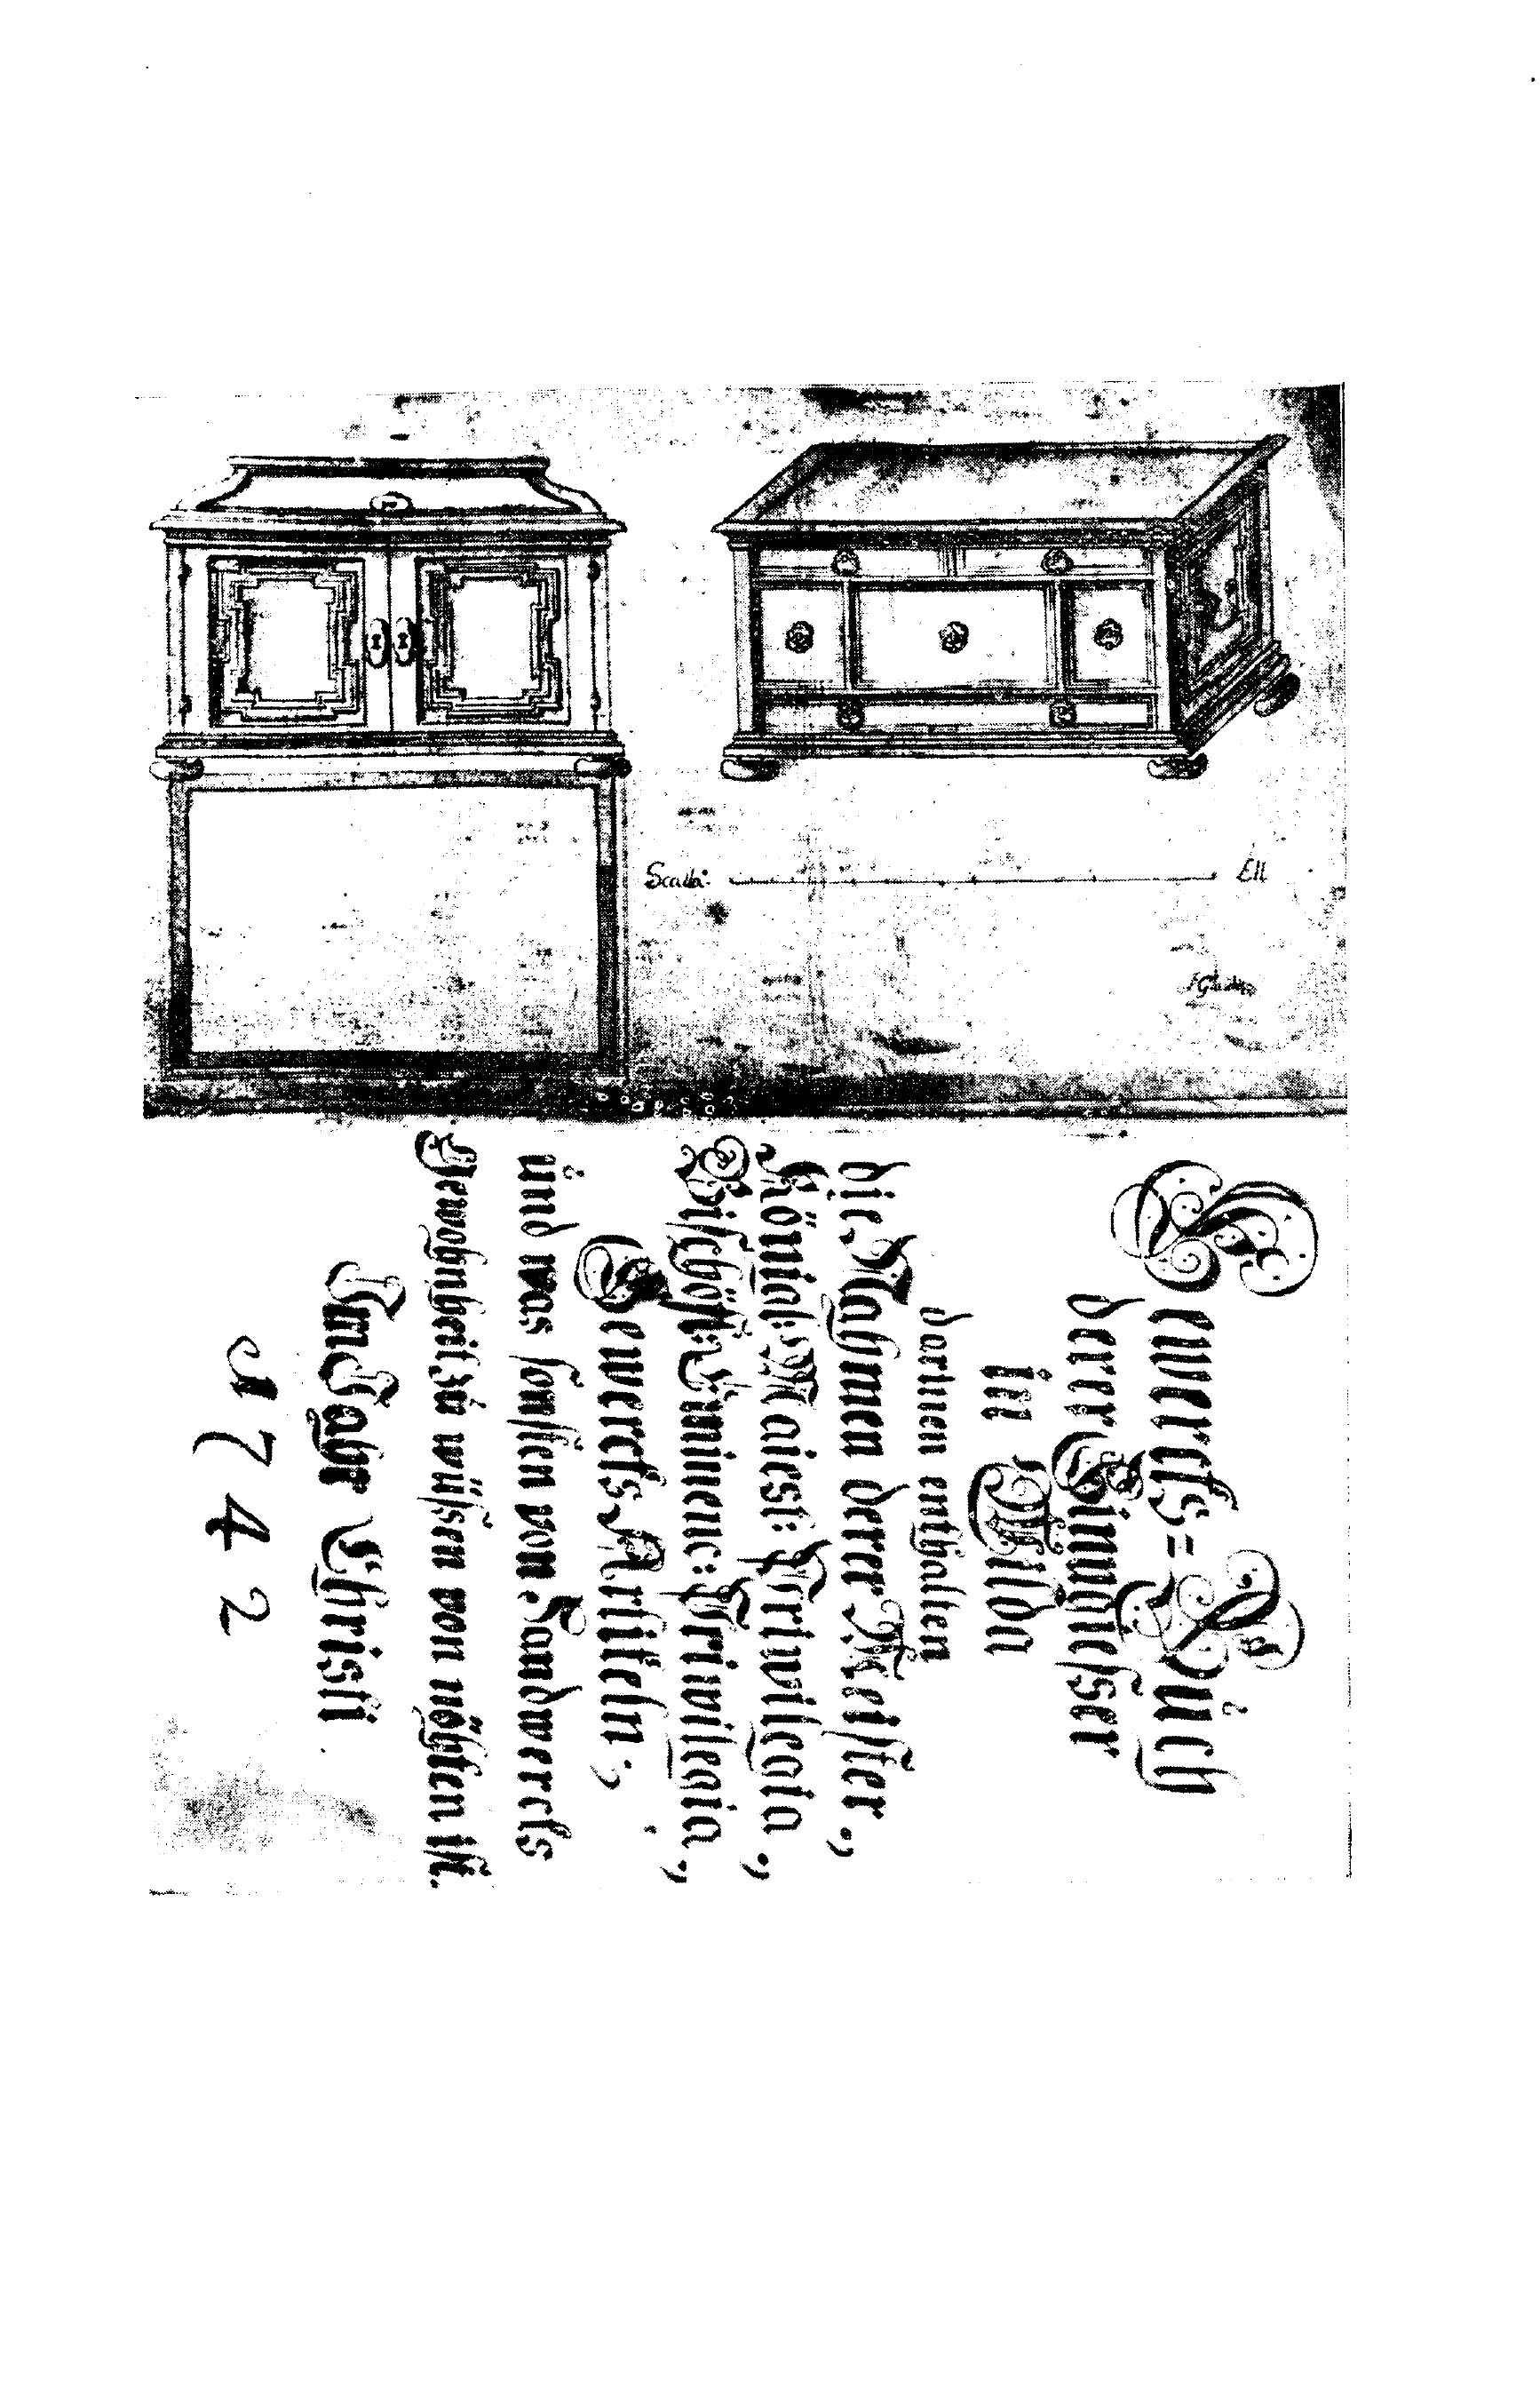 Scalla:
Ell
Gewercks=Buch
derer Zinngiesser
in Wilda
darinen enthalten
die Nahmen derer Meister,
Königl: Maiest: Privilegia,
Bischöfl: Eminenc: Privilegia,
Gewercks Artikeln;
und was sonsten von Handwercks
Gewohnheit zu wüssen von nöhten ist.
Im Jahr Christi
1742